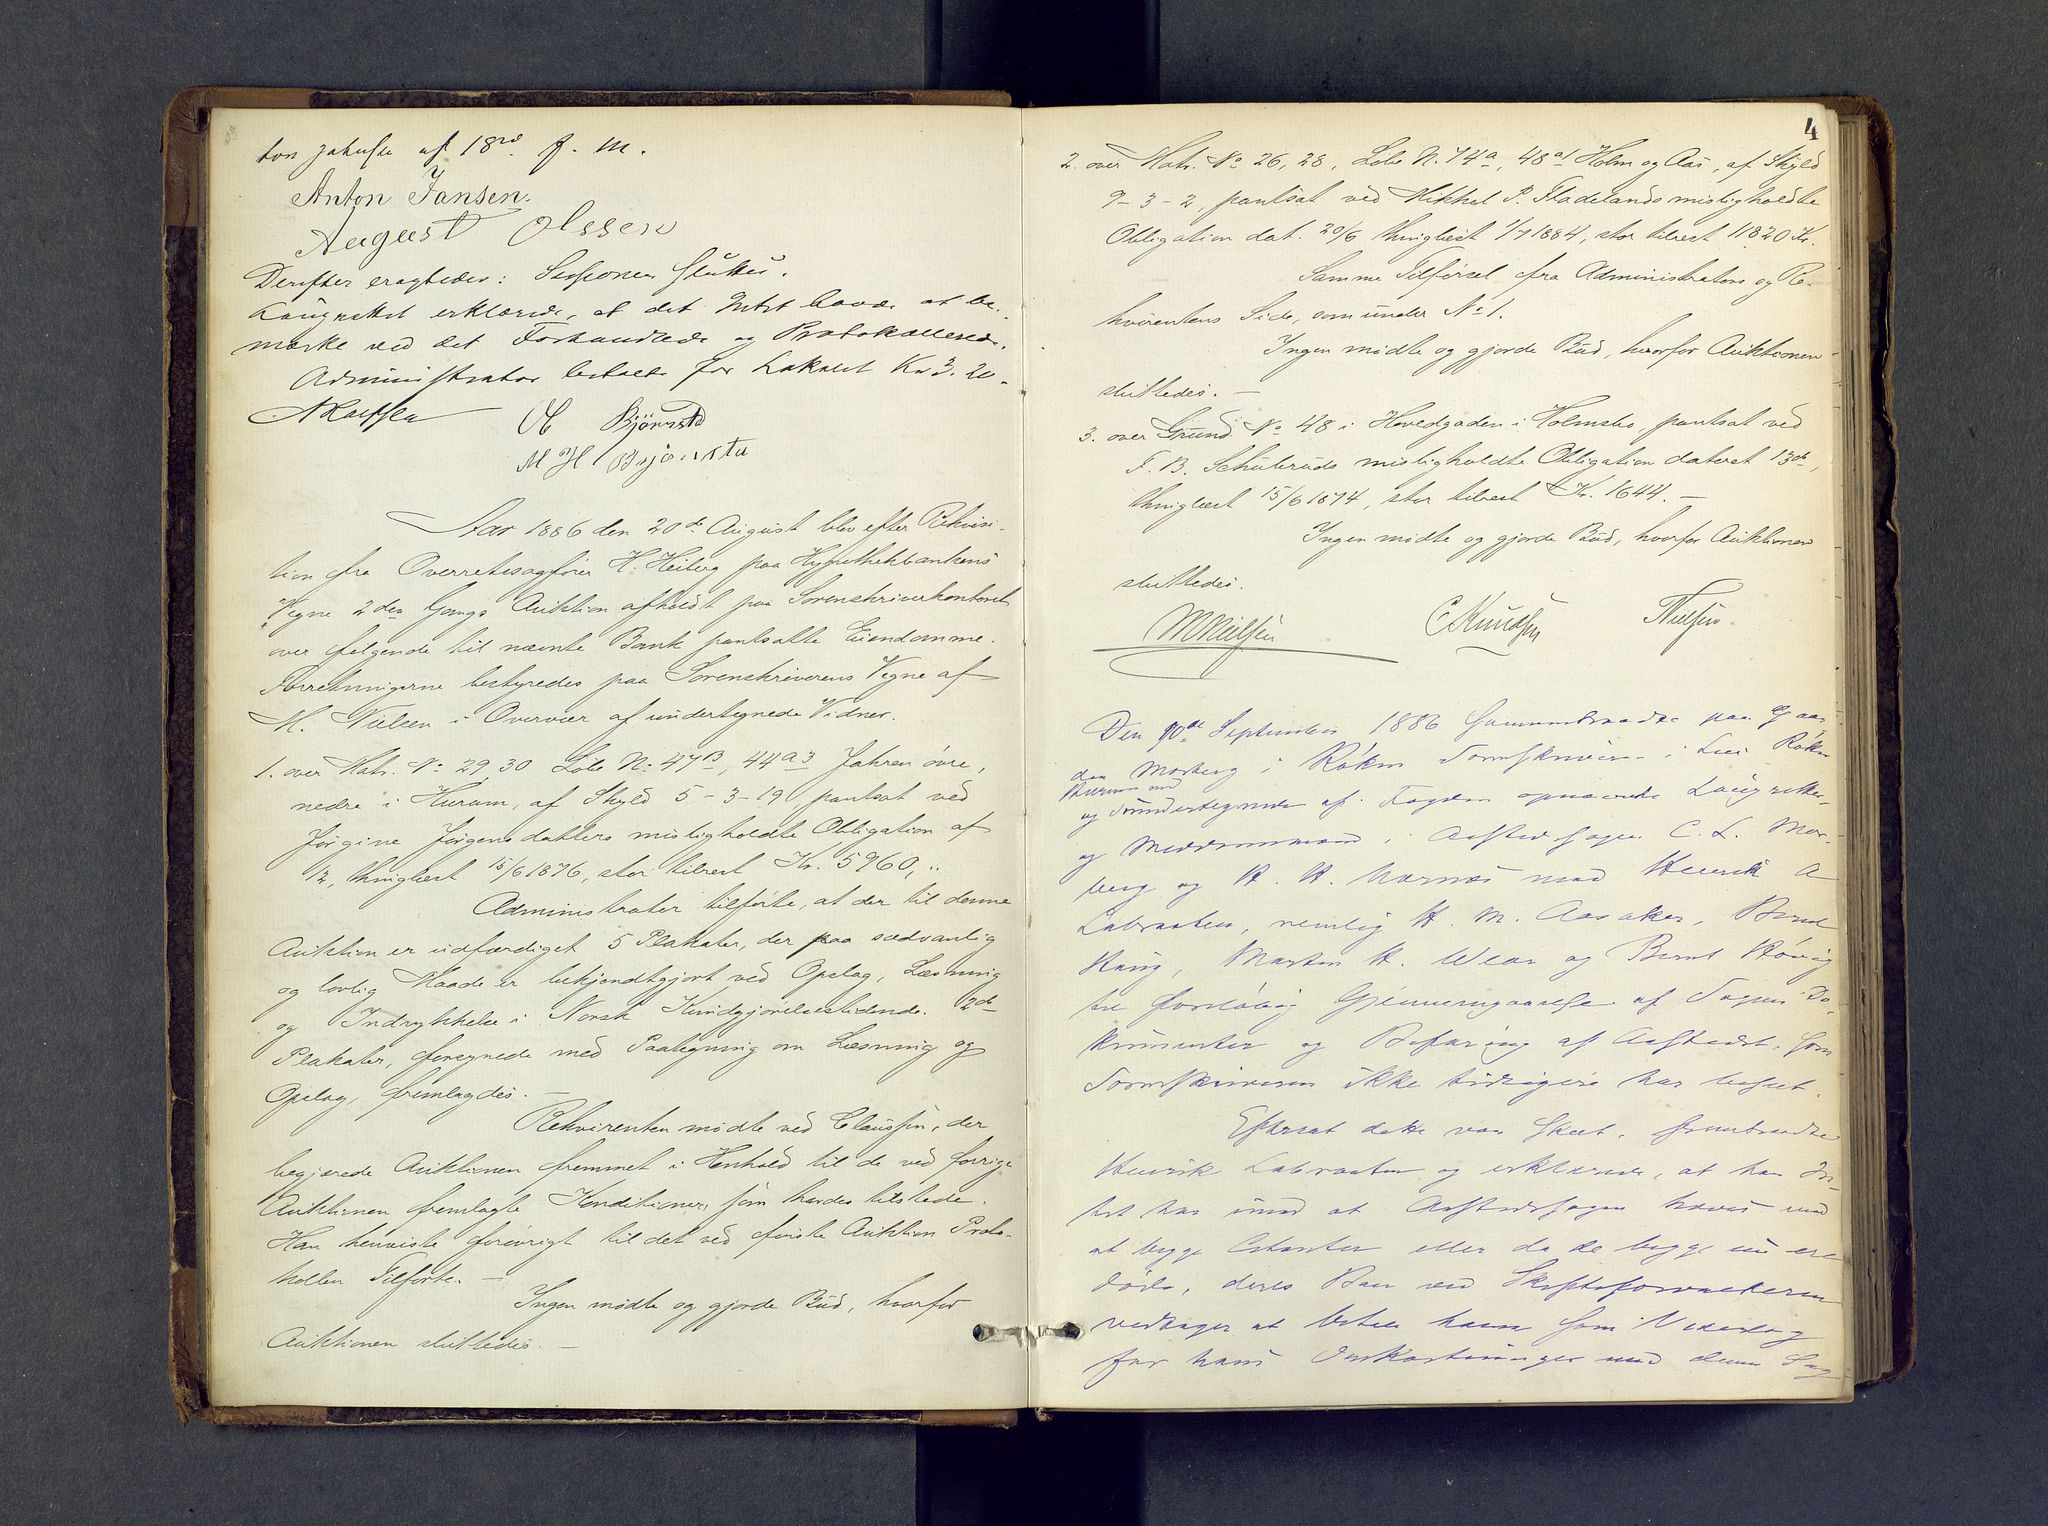 af 18 f. M.
Anton Jansen.
August Olssen
Derefter eragtedes: Sessionen sluttet.
Laugrettet erklærede, at det Intet havde at be-
mærke ved det Forhandlede og Protokollerede.
Administrator betalte for Lokalet Kr 3. 20.
A Bjørnstad
M H Bjørnstad
Aar 1886 den 20de August blev efter Rekvisi-
tion fra Overretssagfører H. Heiberg paa Hypothekbankens
Vegne 2den Gangs Auktion afholdt paa Sorenskriverkontoret
over følgende til nævnte Bank pantsatte Eiendomme.
Forretningerne bestyredes paa Sorenskriverens Vegne af
M. Nielsen i Overvær af undertegnede Vidner.
1. over Matr. No 29, 30 Løbe No 47B, 44a3 Jahren øvre,
nedre i Hurum, af Skyld 5-3-19 pantsat ved
Jørgine Jørgensdatters misligholdte Obligation af
12, thinglæst 15/6 1876, stor tilrest Kr. 5960,..
Administrator tilførte, at der til denne
Auktion er udfærdiget 5 Plakater, der paa sædvanlig
og lovlig Maade er bekjendtgjort ved Opslag, Læsning
og Indrykkelse i Norsk Kundgjørelsestidende. 2de
Plakater, forsynede med Paategning om Læsning og
Opslag, fremlagdes. —
Rekvirenten mødte ved Claussen, der
begjærede Auktionen fremmet i Henhold til de ved forrige
Auktionen fremlagte Konditioner, som havdes tilstede.
Han henviste forøvrigt til det ved første Auktion Proto-
kollen Tilførte. —
Ingen mødte og gjorde Bud, hvorfor
Auktionen sluttedes. —
4
2. over Matr. No 26, 28, Løbe N. 74a, 48a1 Holm og Aas, af Skyld
9-3-2, pantsat ved Mikkel P. Fladelands misligholdte
Obligation dat. 20/6 thinglæst 1/7 1884, stor tilrest 11820 Kr.
Samme Tilførsel fra Administrators og Re-
kvirentens Side, som under No 1.
Ingen mødte og gjorde Bud, hvorfor Auktionen
sluttedes. —
3. over Grund No 48 i Hovedgaden i Holmsbo, pantsat ved
F. B. Schuleruds misligholdte Obligation dateret 13de,
thinglæst 15/6 1874, stor tilrest Kr. 1644. —
Ingen mødte og gjorde Bud, hvorfor Auktionen
sluttedes.
M Nielsen C Knudsen Nielsen
Den 10de September 1886 sammentraadte paa Gaar-
den Morberg i Røken Sorenskriveren i Lier Røken
Hurum med
og undertegnede af Fogden opnævnte Laugrettes-
og Meddomsmænd i Aastedssagen C. L. Mor-
berg og H. H. mod Henrik A
Labraaten, nemlig H. M. Aasaker, Bernt
Haug, Martin H. og Bernt Høvig
til foreløbig Gjennemgaaelse af Sagens Do-
kumenter og Befaring af Aastedet, som
Sorenskriveren ikke tidligere har beseet.
Efterat dette var skeet, fremtraadte
Henrik Labraaten og erklærede, at han In-
tet har imod at Aastedssagen hæves mod
at begge Citanter eller da de begge nu ere
døde, deres Boer ved Skifteforvalteren
vedtager at betale ham som Vederlag
for hans Omkostninger med denne Sag